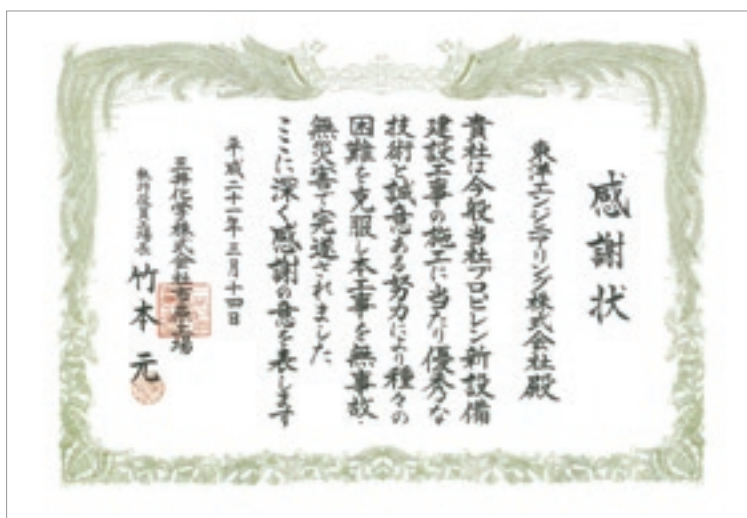 感謝状
東洋エンジニアリング株式会社殿
貴社は今般当社プロピレン新設備
建設工事の施工に当たり優秀な
技術と誠意ある努力により種々の
困難を克服し本工事を無事故・
無災害で完遂されました
ここに深く感謝の意を表します
平成二十一年三月十四日
三井化学株式会社市原工場
執行役員工場長 竹本元